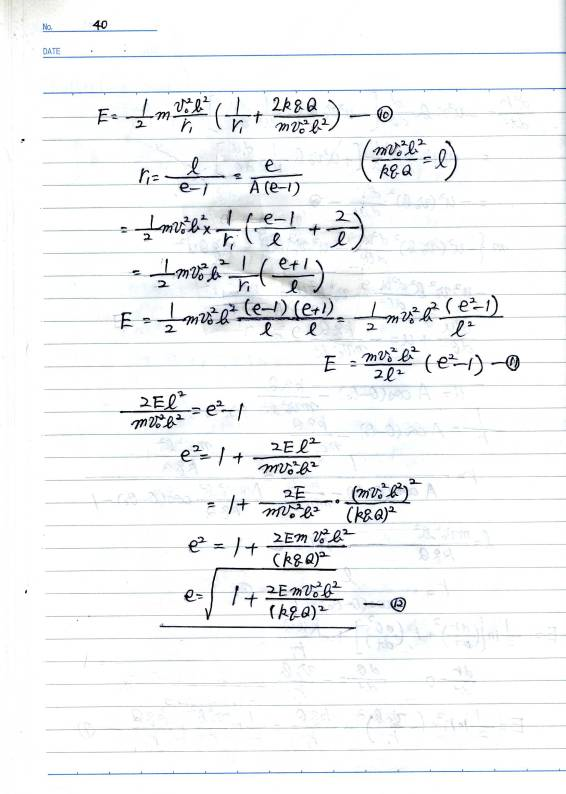 No. 40
DATE . .
E = 1/2 m v₀²b²/r₁ (1/r₁ + 2kqQ/mv₀²b²) — ⑩
r₁ = l/(e-1) = e/A(e-1) (mv₀²b²/kqQ = l)
= 1/2 mv₀²b² × 1/r₁ ((e-1)/l + 2/l)
= 1/2 mv₀²b² 1/r₁ ((e+1)/l)
E = 1/2 mv₀²b² (e-1)/l (e+1)/l = 1/2 mv₀²b² (e²-1)/l²
E = mv₀²b²/2l² (e²-1) — ⑪
2El²/mv₀²b² = e²-1
e² = 1 + 2El²/mv₀²b²
= 1 + 2E/mv₀²b² · (mv₀²b²)²/(kqQ)²
e² = 1 + 2Emv₀²b²/(kqQ)²
e = √(1 + 2Emv₀²b²/(kqQ)²) — ⑫